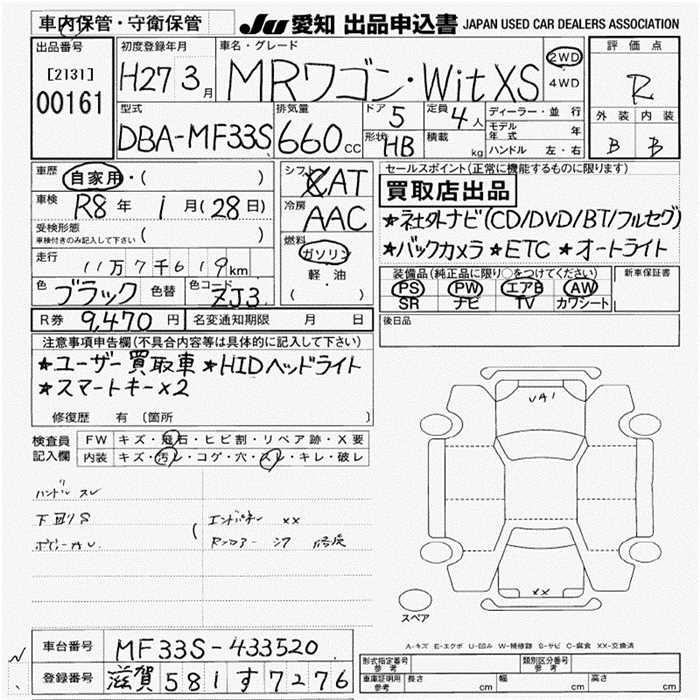 車内保管・守衛保管
JU 愛知 出品申込書 JAPAN USED CAR DEALERS ASSOCIATION
出品番号
[2131]
00161
初度登録年月
H27 3月
車名・グレード
MRワゴン・Wit XS
2WD
・
4WD
評価点
R
外装 内装
B B
型式
DBA-MF33S
排気量
660 CC
ドア 5
形状 HB
定員 4人
積載 kg
ディーラー・並行
モデル年式 年
ハンドル 左・右
車歴
自家用・( )
車検 R8年 1月(28日)
受検形態
車検付きのみ記入して下さい ( )
走行
11万7千619km
色 ブラック 色替 色コード ZJ3
シフト
AT
冷房
AAC
燃料
ガソリン
軽・油
( )
セールスポイント(正常に機能するものに限ります)
買取店出品
★社外ナビ(CD/DVD/BT/フルセグ)
★バックカメラ ★ETC ★オートライト
装備品(純正品に限り○をつけてください)
PS PW エアB AW
SR ナビ TV カワシート
新車保証書
後日品
R券 9,470円 名変通知期限 月 日
注意事項申告欄(不具合内容等は具体的に記入して下さい)
★ユーザー買取車 ★HIDヘッドライト
★スマートキー×2
修復歴 有 〔箇所
検査員
記入欄
FW キズ・飛石・ヒビ割・リペア跡・X要
内装 キズ・汚レ・コゲ・穴・スレ・キレ・破レ
ハンドル スレ
エンドパネル XX
修復
UA1
XX
スペア
A-キズ E-エクボ U-凹み W-補修跡 S-サビ C-腐食 XX-交換済
車台番号 MF33S-433520
登録番号 滋賀 581 す 7276
形式指定番号 参考
類別区分番号 参考
車庫証明用 参考 長さ cm 幅 cm 高さ cm